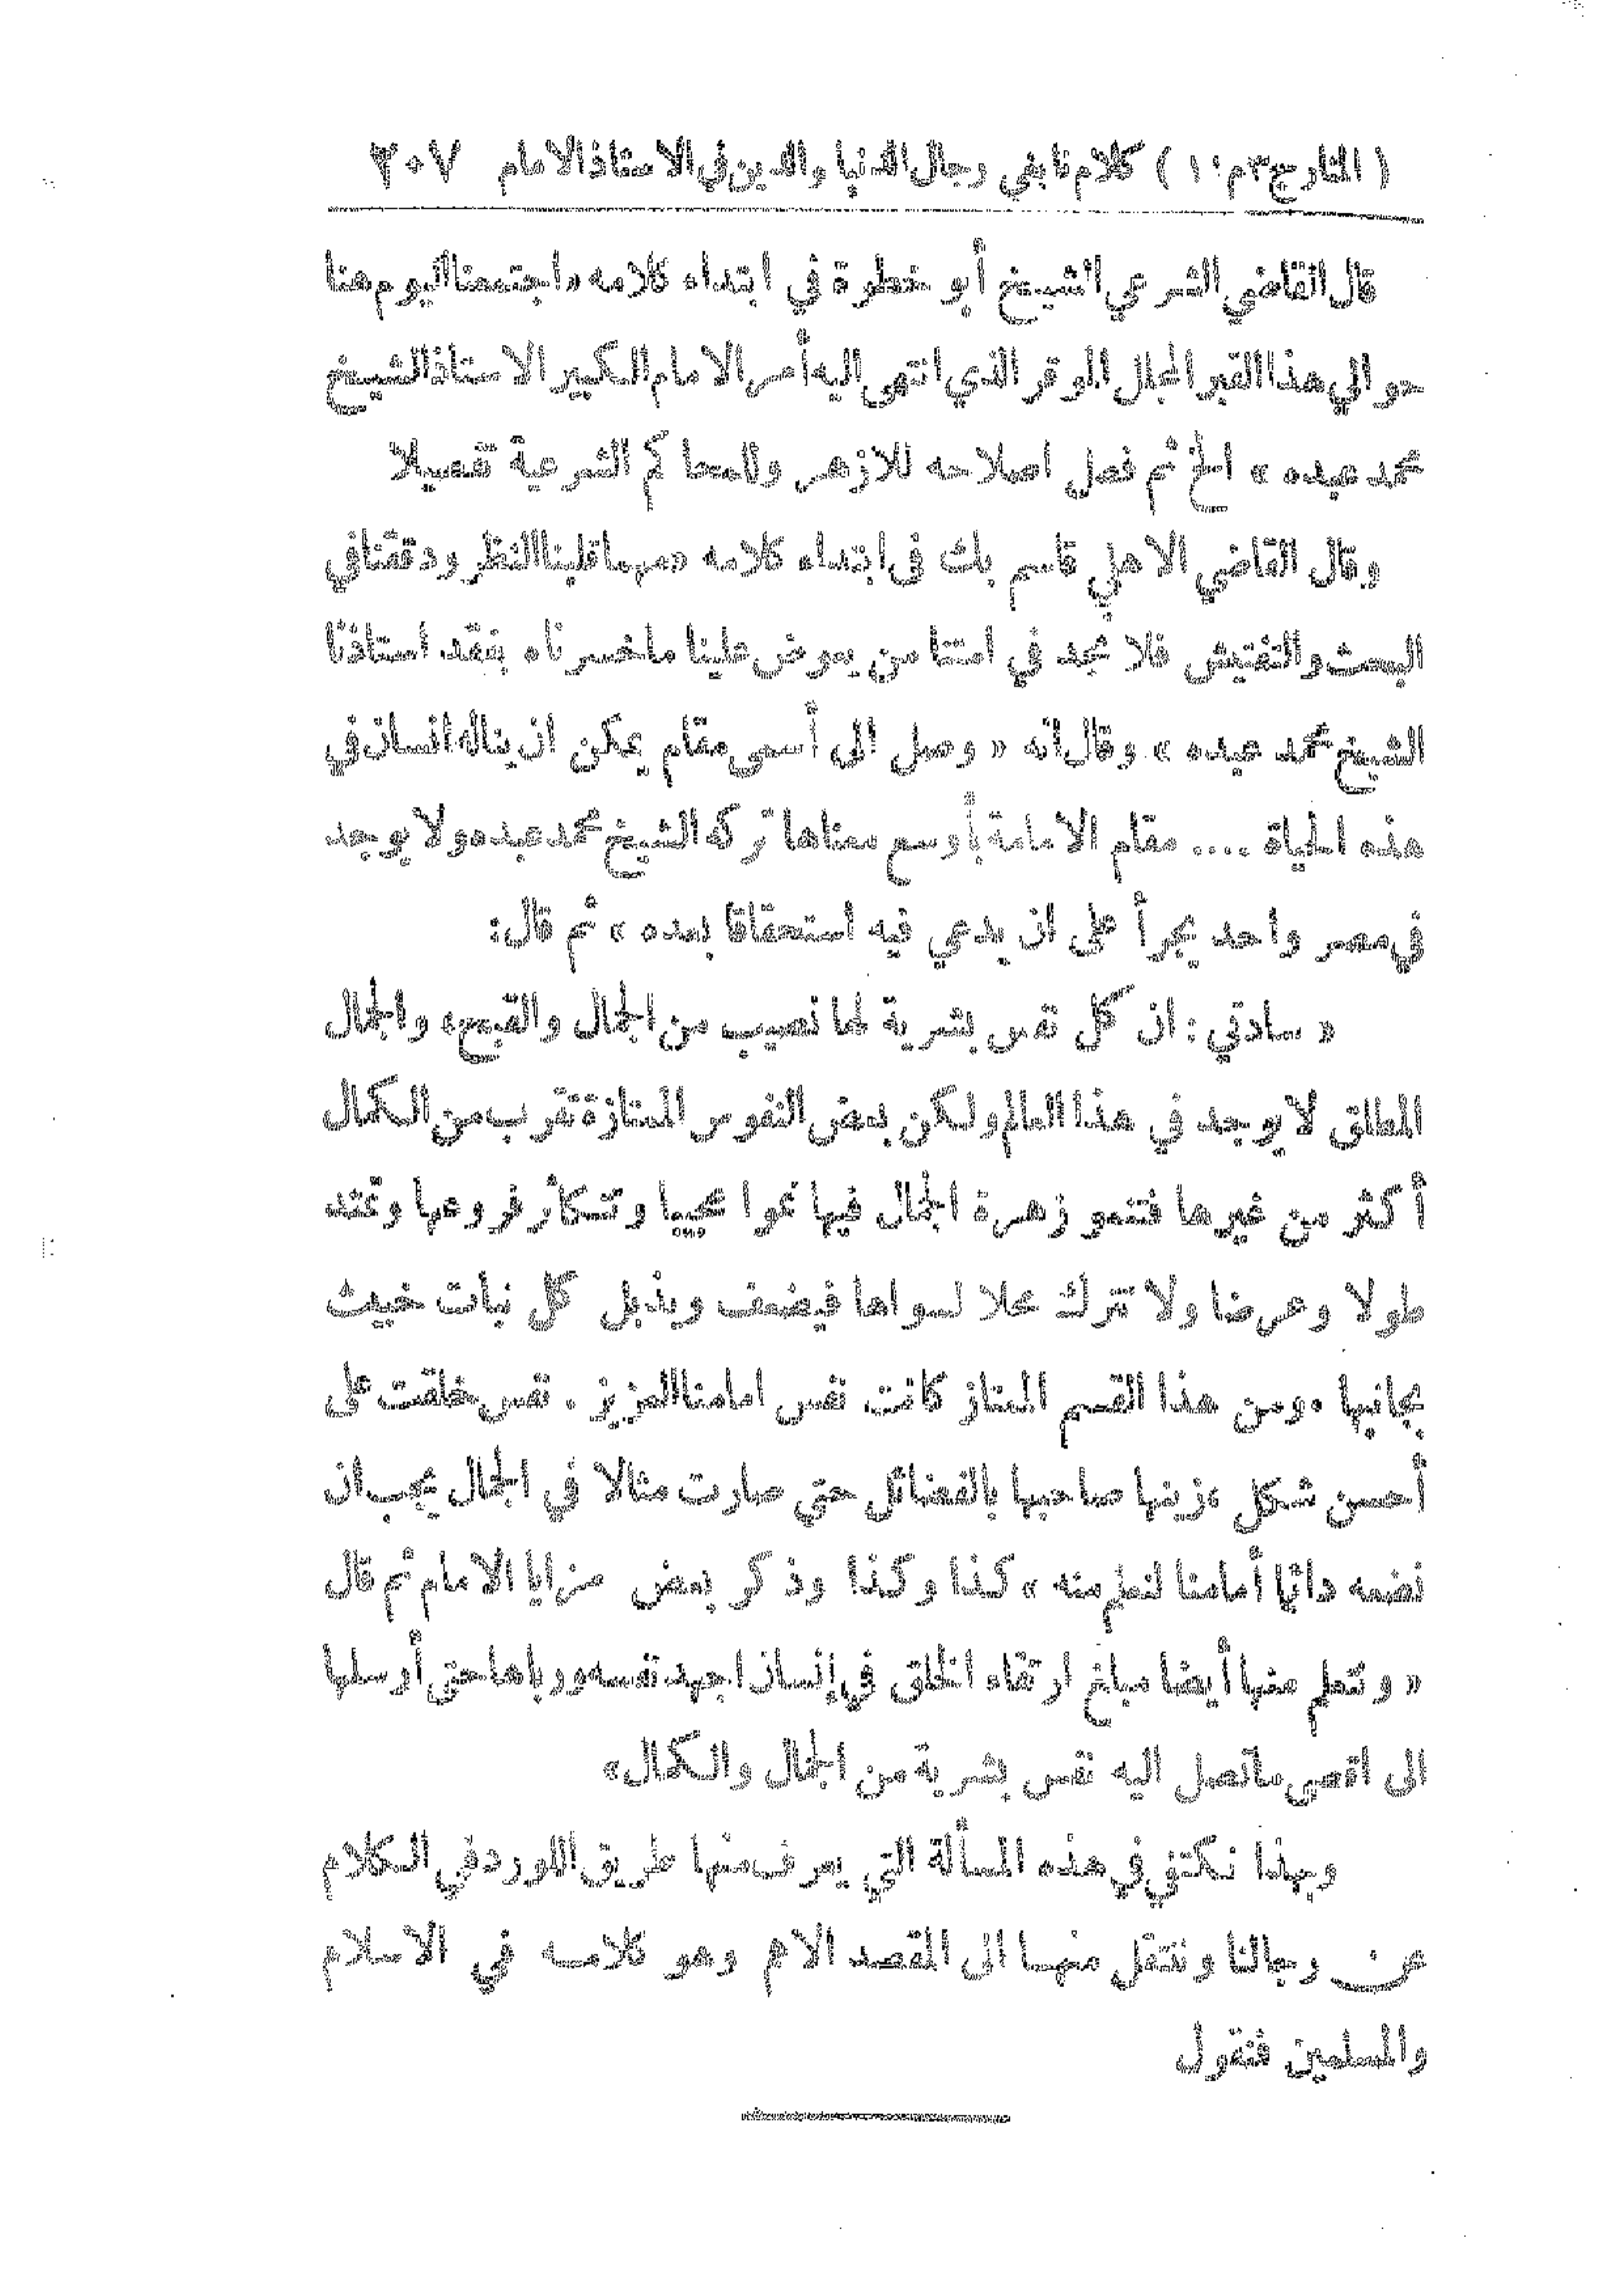 ( المنار ج ٣ م ١٠ ) كلام نابغي رجال الدنيا والدين في الاستاذ الامام ٢٠٧
قال القاضي الشرعي الشيخ أبو خطوة في ابتداء كلامه «اجتمعنا اليوم هنا
حوالي هذا القبر المجلل الموقر الذي انتهى اليه أمر الامام الكبير الاستاذ الشيخ
محمد عبده » الخ ثم فصل اصلاحه للازهر وللمحاكم الشرعية تفصيلا
وقال القاضي الاهلي قاسم بك في ابتداء كلامه «مهما قلبنا النظر ودققنا في
البحث والتفتيش فلا نجد في امتنا من يعوض علينا ما خسرناه بفقد استاذنا
الشيخ محمد عبده » وقال انه « وصل الى أسمى مقام يمكن ان يناله انسان في
هذه الحياة .... مقام الامامة بأوسع معناها تركه الشيخ محمد عبده ولا يوجد
في مصر واحد يجرأ على ان يدعي فيه استحقاقا بعده » ثم قال:
« سادتي : ان كل نفس بشرية لها نصيب من الجمال والقبح، والجمال
المطلق لا يوجد في هذا العالم ولكن بعض النفوس الممتازة تقرب من الكمال
أكثر من غيرها فتنمو زهرة الجمال فيها نموا عجيبا وتتكاثر فروعها وتمتد
طولا وعرضا ولا تترك محلا لسواها فيضعف ويذبل كل نبات خبيث
بجانبها . ومن هذا القسم الممتاز كانت نفس امامنا العزيز . نفس خلقت على
أحسن شكل ، زينها صاحبها بالفضائل حتى صارت مثالا في الجمال يجب ان
نضعه دائما أمامنا لنعلم منه » كذا وكذا وذكر بعض مزايا الامام ثم قال
« ونتعلم منها أيضا مبلغ ارتقاء الخلق في إنسان اجهد نفسه ورباها حتى أوصلها
الى اقصى ما تصل اليه نفس بشرية من الجمال والكمال»
وبهذا نكتفي في هذه المسألة التي يعرف منها طريق اللورد في الكلام
عن رجالنا وننتقل منها الى المقصد الاهم وهو كلامه في الاسلام
والمسلمين فنقول